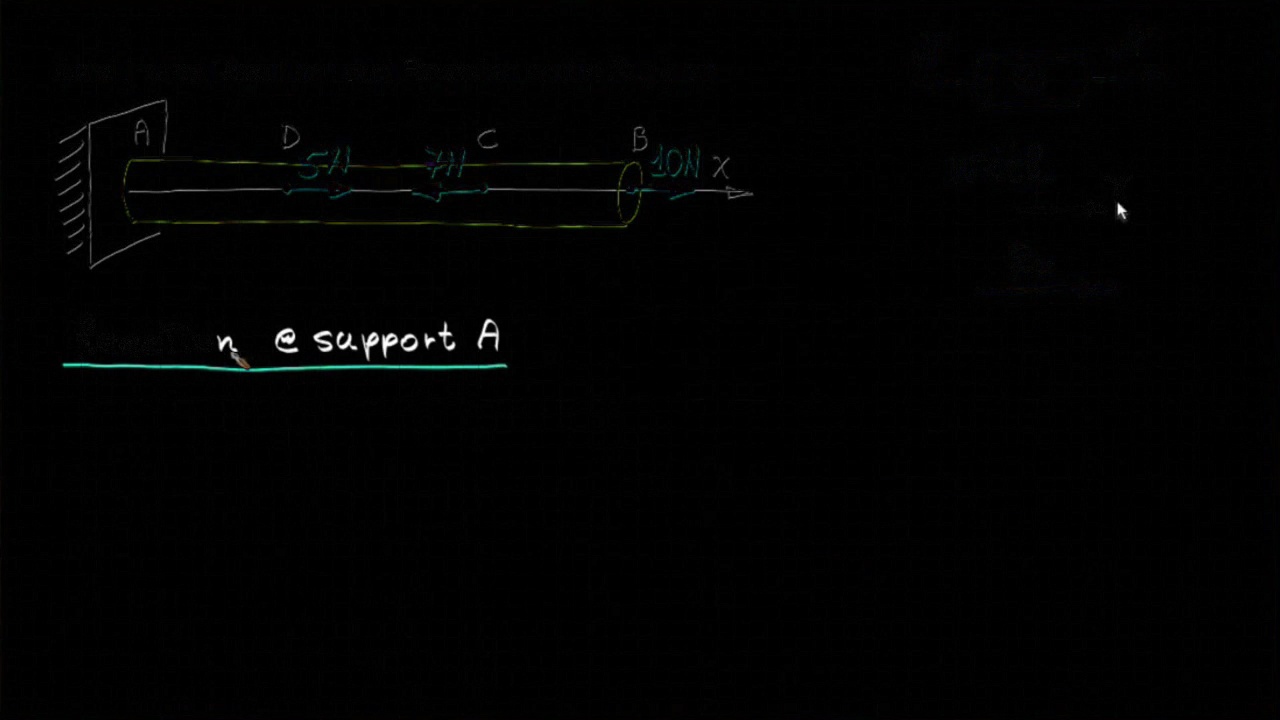 A D C B
5N 7N 10N X
n @ support A